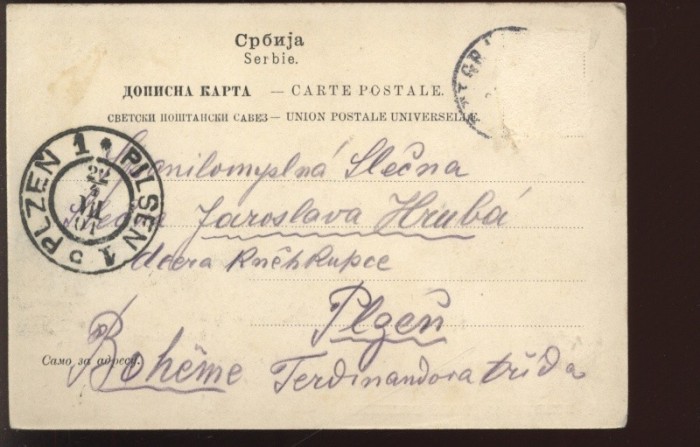 Србија
Serbie.
ДОПИСНА КАРТА — CARTE POSTALE.
СВЕТСКИ ПОШТАНСКИ САВЕЗ — UNION POSTALE UNIVERSELLE.
PLZEN 1 * PILSEN 1
22
VII
01
Slečna
Jaroslava Hrubá
dcera kněhkupce
Plzeň
Само за адресу.
Bohême Ferdinandova třída